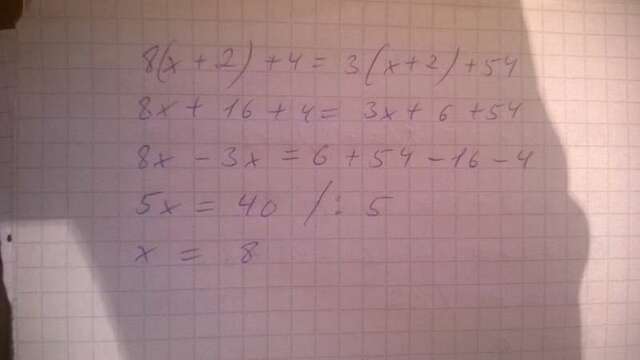 8(x + 2) + 4 = 3(x + 2) + 54
8x + 16 + 4 = 3x + 6 + 54
8x - 3x = 6 + 54 - 16 - 4
5x = 40 /: 5
x = 8